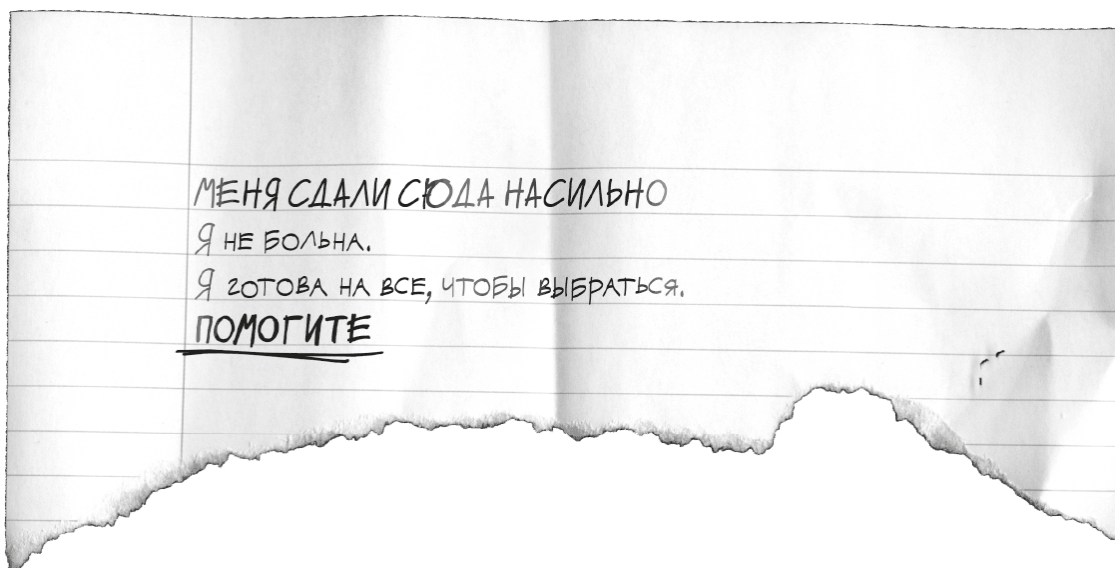 МЕНЯ СДАЛИ СЮДА НАСИЛЬНО
Я НЕ БОЛЬНА.
Я ГОТОВА НА ВСЕ, ЧТОБЫ ВЫБРАТЬСЯ.
ПОМОГИТЕ